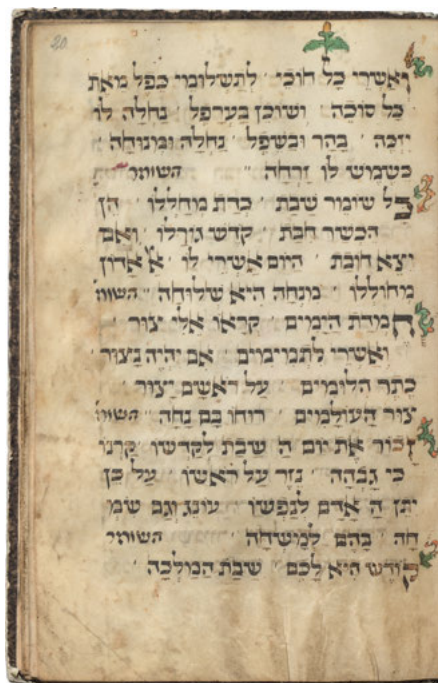 20
ואשרי כל חוכי לתשלומי כפל מאת
כל סוכה ושוכן בערפל נחלה לו
יזכה בהר ובשפל נחלה ומנוחה
כשמש לו זרחה השומר
כל שומר שבת כדת מחללו הן
הכשר חבת קדש גורלו ואם
יצא חובת היום אשרי לו אל אדון
מחוללו מנחה היא שלוחה השומ
חמדת הימים קראו אלי צור
ואשרי לתמימים אם יהיה נצור
כתר הלומים על ראשם יצור
צור העולמים רוחו בם נחה השומ
זכור את יום ה שבת לקדשו קרנו
כי גבהה נזר על ראשו על כן
יתן ה אדם לנפשו עונג וגם שמ
חה בהם למשחה השומר
קודש היא לכם שבת המלכה